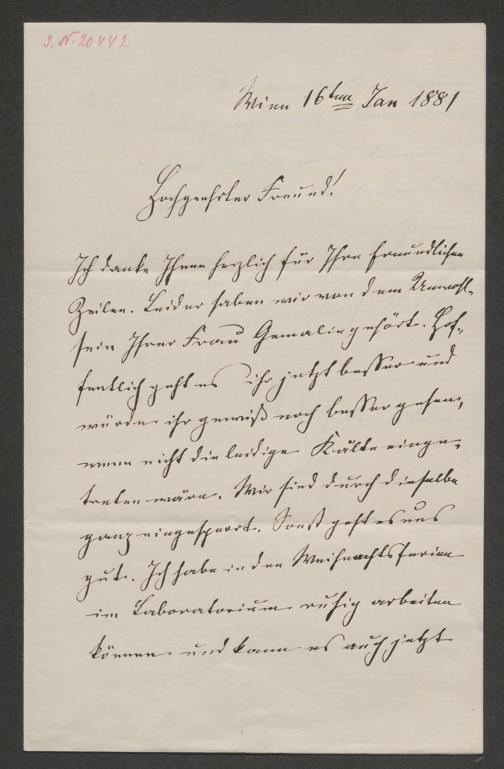 J. N. 20442
Wien 16ten Jan 1881
Hochgeehrter Freund!
Ich danke Ihnen herzlich für Ihre freundlichen
Zeilen. Leider haben wir von dem Unwohl-
sein Ihrer Frau Gemalin gehört. Hof-
fentlich geht es ihr jetzt besser und
würde ihr gewiß noch besser gehen,
wenn nicht die leidige Kälte einge-
treten wäre. Wir sind durch dieselbe
ganz eingesperrt. Sonst geht es uns
gut. Ich habe in den Weihnachtsferien
im Laboratorium ruhig arbeiten
können und kann es auch jetzt